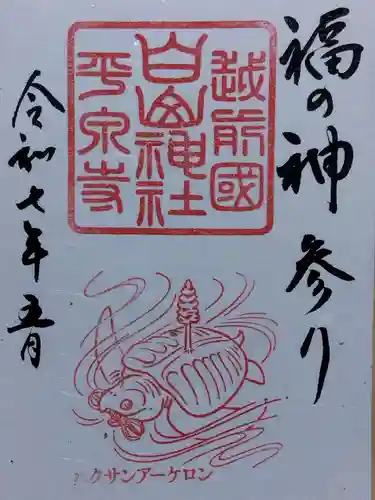 福の神参り
越前國
白山神社
平泉寺
令和七年五月
クサンアーケロン